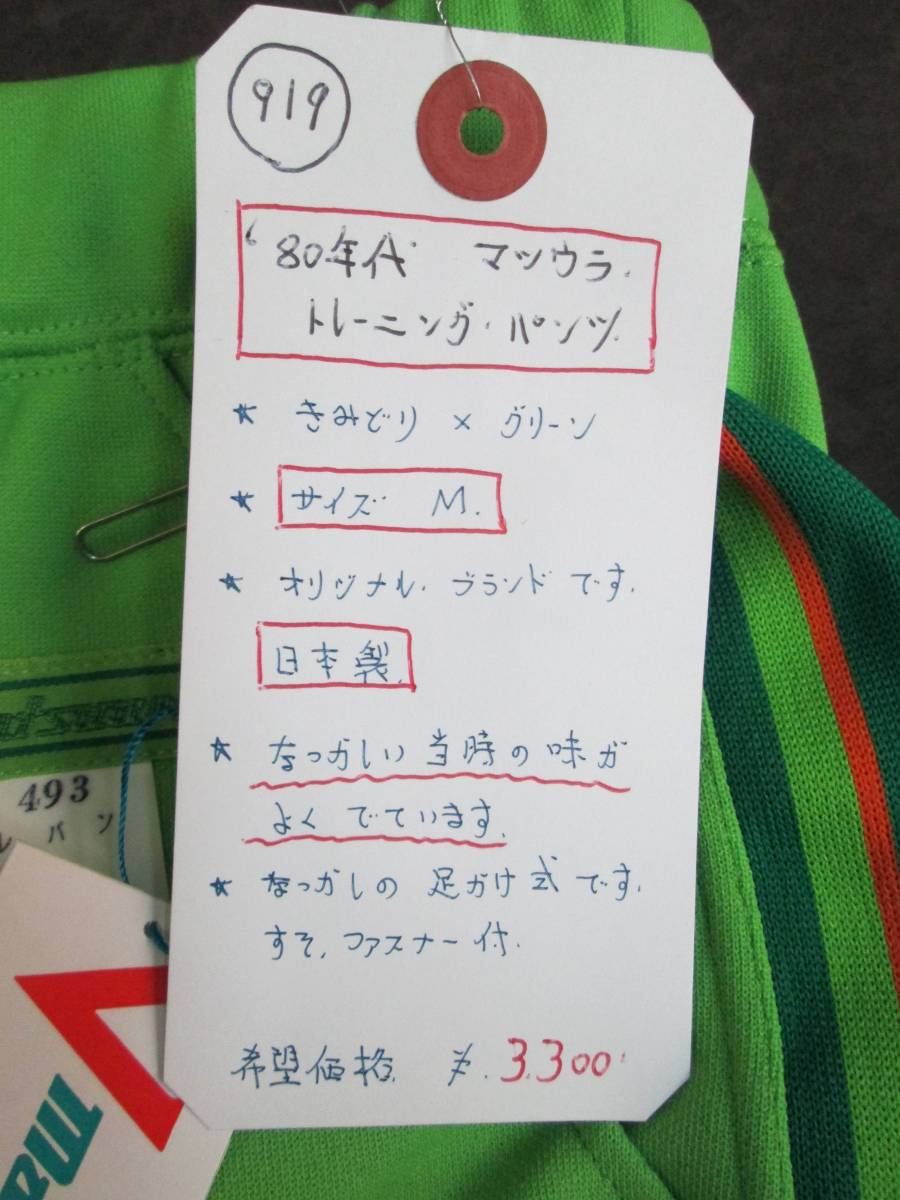 919
'80年代 マツウラ.
トレーニング・パンツ.
★ きみどり × グリーン
★ サイズ M.
★ オリジナル・ブランドです.
日本製.
★ なつかしい当時の味が
よくでています.
★ なつかしの足かけ式です.
すそ,ファスナー付.
希望価格 ¥.3.300
493
レパン